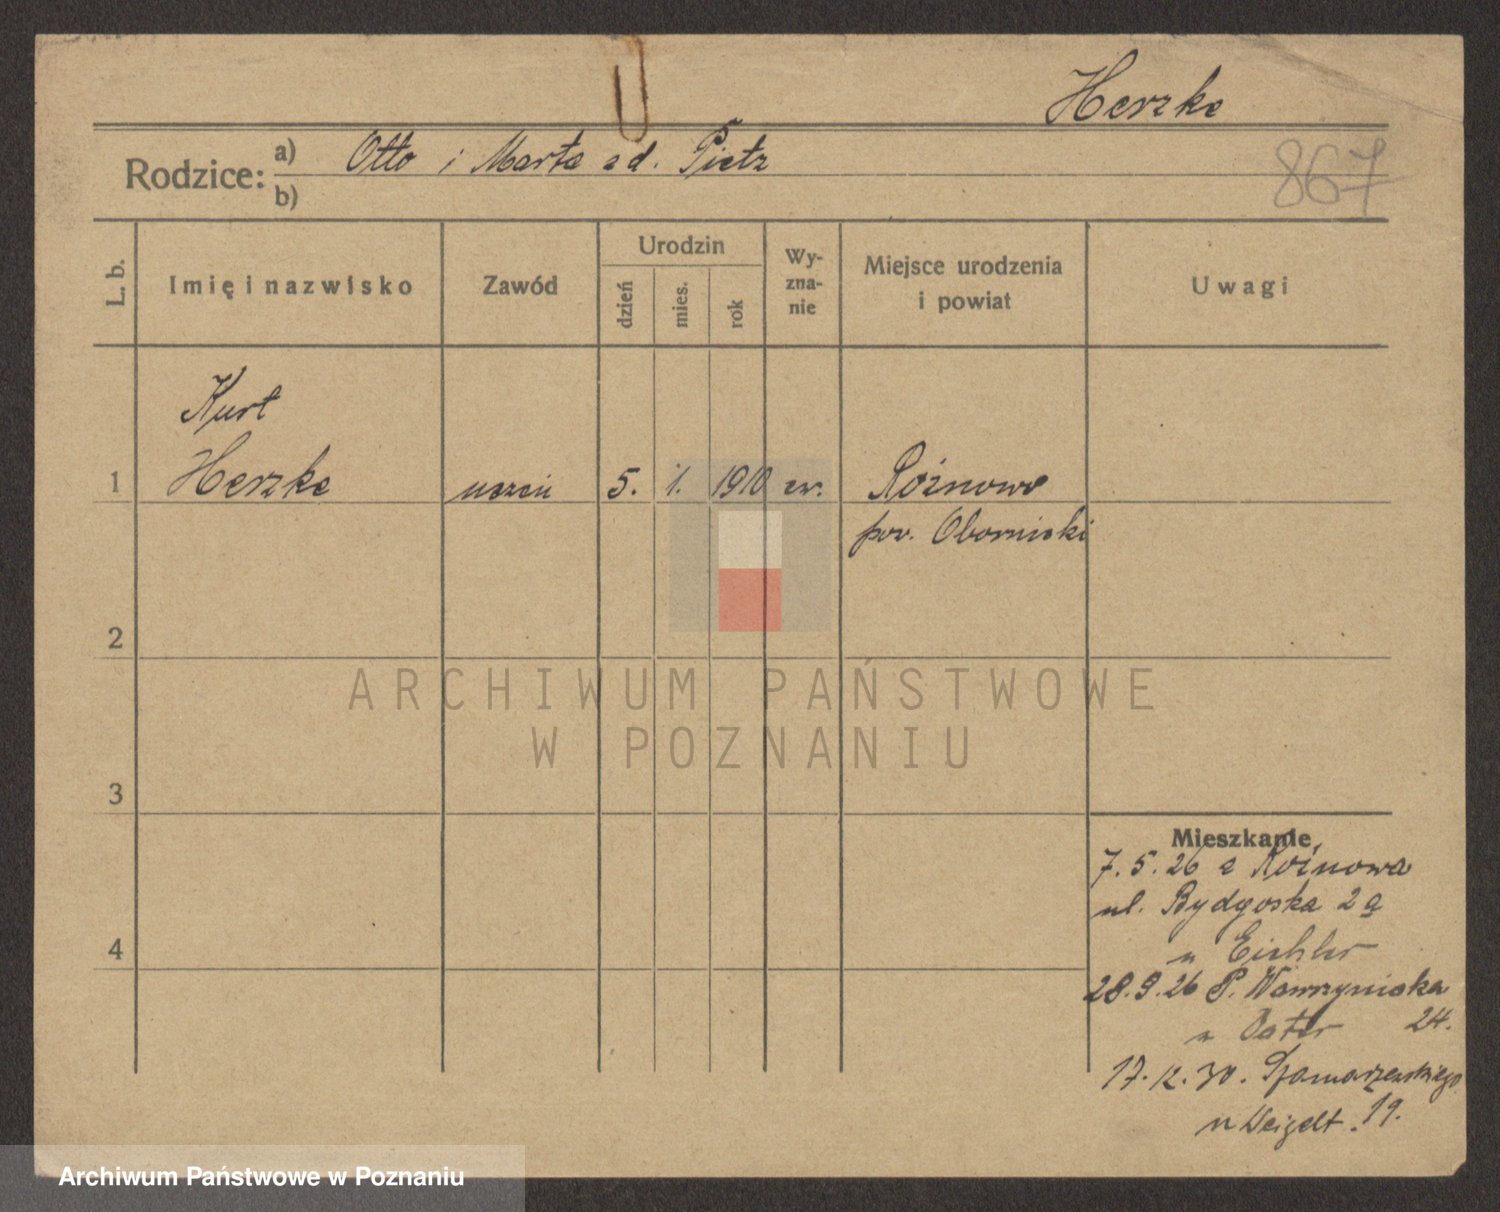 Herzke
Rodzice: a) Otto i Marta zd. Pietz
b)
867
L. b.
Imię i nazwisko
Zawód
Urodzin
dzień
mies.
rok
Wy-
zna-
nie
Miejsce urodzenia
i powiat
Uwagi
Kurt
1 Herzke uczeń 5. 1. 1910 ew. Różnowo
pow. Obornicki
2
ARCHIWUM PAŃSTWOWE
W POZNANIU
3
Mieszkanie
7.5.26 z Rożnowa
4
ul. Bydgoska 2a
u Eichler
28.9.26 P. Wawrzyniaka
u 24.
17.12.30. Szamarzewskiego
u Weigelt. 19.
Archiwum Państwowe w Poznaniu